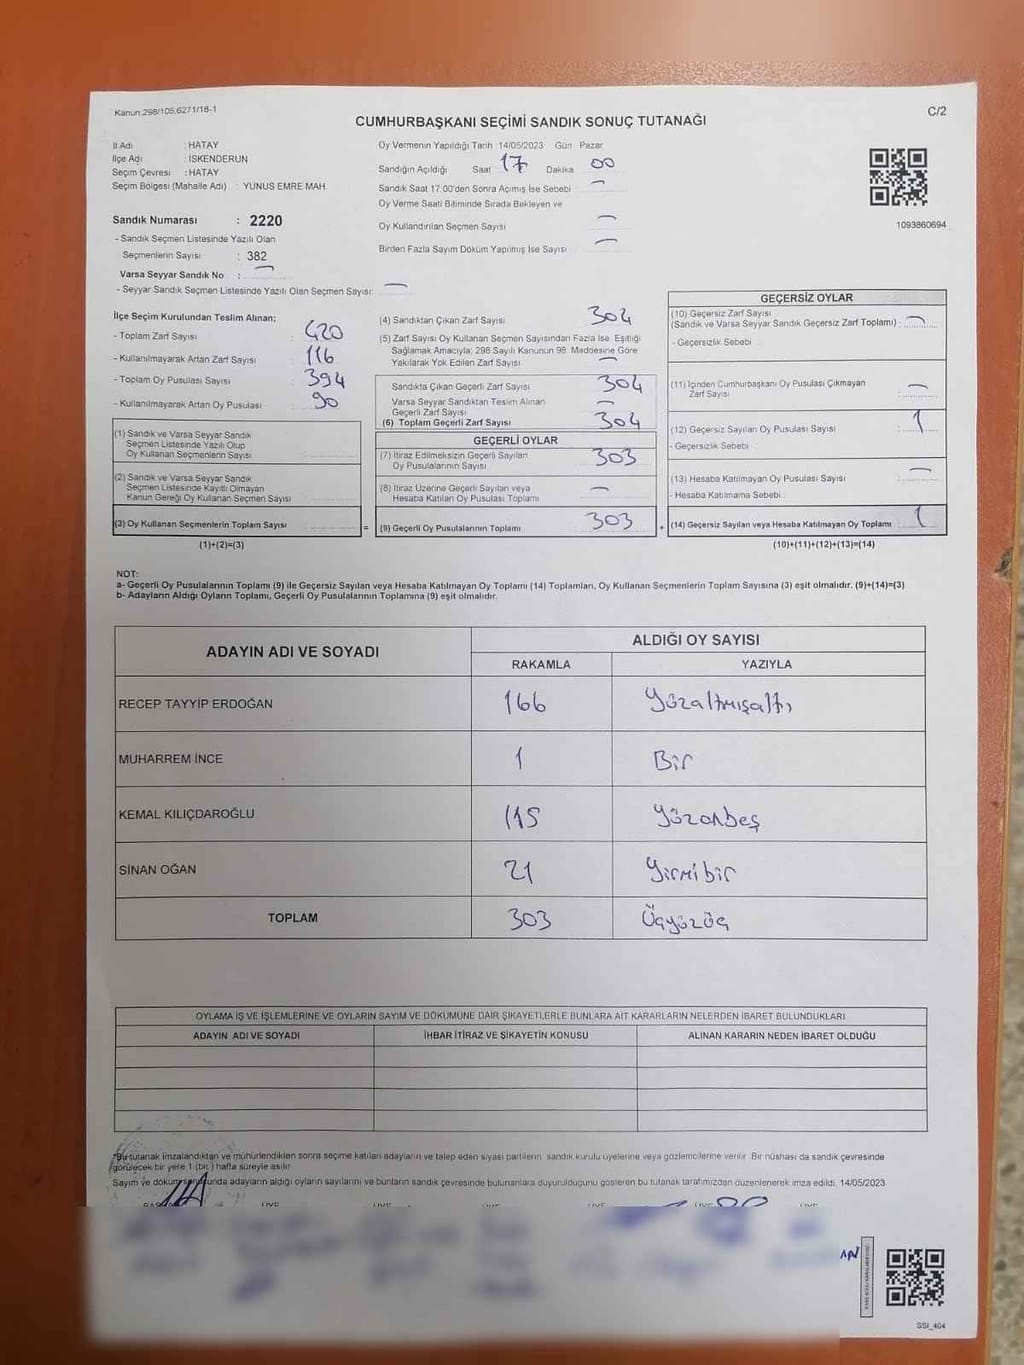 Kanun:298/105,6271/18-1
C/2
CUMHURBAŞKANI SEÇİMİ SANDIK SONUÇ TUTANAĞI
İl Adı : HATAY
İlçe Adı : İSKENDERUN
Seçim Çevresi : HATAY
Seçim Bölgesi (Mahalle Adı) : YUNUS EMRE MAH.
Oy Vermenin Yapıldığı Tarih 14/05/2023 Gün Pazar
Sandığın Açıldığı Saat 17 Dakika 00
Sandık Saat 17:00'den Sonra Açılmış İse Sebebi
Oy Verme Saati Bitiminde Sırada Bekleyen ve
Oy Kullandırılan Seçmen Sayısı
Birden Fazla Sayım Döküm Yapılmış İse Sayısı
1093860694
Sandık Numarası : 2220
- Sandık Seçmen Listesinde Yazılı Olan
Seçmenlerin Sayısı : 382
Varsa Seyyar Sandık No :
- Seyyar Sandık Seçmen Listesinde Yazılı Olan Seçmen Sayısı:
İlçe Seçim Kurulundan Teslim Alınan;
- Toplam Zarf Sayısı : 420
- Kullanılmayarak Artan Zarf Sayısı : 116
- Toplam Oy Pusulası Sayısı : 394
- Kullanılmayarak Artan Oy Pusulası : 90
(1) Sandık ve Varsa Seyyar Sandık
Seçmen Listesinde Yazılı Olup
Oy Kullanan Seçmenlerin Sayısı
(2) Sandık ve Varsa Seyyar Sandık
Seçmen Listesinde Kayıtlı Olmayan
Kanun Gereği Oy Kullanan Seçmen Sayısı
(3) Oy Kullanan Seçmenlerin Toplam Sayısı
(1)+(2)=(3)
=
(4) Sandıktan Çıkan Zarf Sayısı 304
(5) Zarf Sayısı Oy Kullanan Seçmen Sayısından Fazla İse, Eşitliği
Sağlamak Amacıyla; 298 Sayılı Kanunun 98. Maddesine Göre
Yakılarak Yok Edilen Zarf Sayısı
Sandıkta Çıkan Geçerli Zarf Sayısı 304
Varsa Seyyar Sandıktan Teslim Alınan
Geçerli Zarf Sayısı
(6) Toplam Geçerli Zarf Sayısı 304
GEÇERLİ OYLAR
(7) İtiraz Edilmeksizin Geçerli Sayılan
Oy Pusulalarının Sayısı 303
(8) İtiraz Üzerine Geçerli Sayılan veya
Hesaba Katılan Oy Pusulası Toplamı
(9) Geçerli Oy Pusulalarının Toplamı 303
+
GEÇERSİZ OYLAR
(10) Geçersiz Zarf Sayısı
(Sandık ve Varsa Seyyar Sandık Geçersiz Zarf Toplamı) :
- Geçersizlik Sebebi
(11) İçinden Cumhurbaşkanı Oy Pusulası Çıkmayan
Zarf Sayısı
(12) Geçersiz Sayılan Oy Pusulası Sayısı : 1
- Geçersizlik Sebebi
(13) Hesaba Katılmayan Oy Pusulası Sayısı
- Hesaba Katılmama Sebebi
(14) Geçersiz Sayılan veya Hesaba Katılmayan Oy Toplamı 1
(10)+(11)+(12)+(13)=(14)
NOT:
a- Geçerli Oy Pusulalarının Toplamı (9) ile Geçersiz Sayılan veya Hesaba Katılmayan Oy Toplamı (14) Toplamları, Oy Kullanan Seçmenlerin Toplam Sayısına (3) eşit olmalıdır. (9)+(14)=(3)
b- Adayların Aldığı Oyların Toplamı, Geçerli Oy Pusulalarının Toplamına (9) eşit olmalıdır.
ADAYIN ADI VE SOYADI ALDIĞI OY SAYISI
RAKAMLA YAZIYLA
RECEP TAYYİP ERDOĞAN 166 Yüzaltmışaltı
MUHARREM İNCE 1 Bir
KEMAL KILIÇDAROĞLU 115 Yüzonbeş
SİNAN OĞAN 21 Yirmibir
TOPLAM 303 Üçyüzüç
OYLAMA İŞ VE İŞLEMLERİNE VE OYLARIN SAYIM VE DÖKÜMÜNE DAİR ŞİKAYETLERLE BUNLARA AİT KARARLARIN NELERDEN İBARET BULUNDUKLARI
ADAYIN ADI VE SOYADI İHBAR İTİRAZ VE ŞİKAYETİN KONUSU ALINAN KARARIN NEDEN İBARET OLDUĞU
*Bu tutanak imzalandıktan ve mühürlendikten sonra seçime katılan adayların ve talep eden siyasi partilerin sandık kurulu üyelerine veya gözlemcilerine verilir. Bir nüshası da sandık çevresinde
görülecek bir yere 1 (bir) hafta süreyle asılır.
Sayım ve döküm sonucunda adayların aldığı oyların sayılarını ve bunların sandık çevresinde bulunanlara duyurulduğunu gösteren bu tutanak tarafımızdan düzenlenerek imza edildi. 14/05/2023
ÜYE ÜYE ÜYE ÜYE ÜYE ÜYE
SSI_404